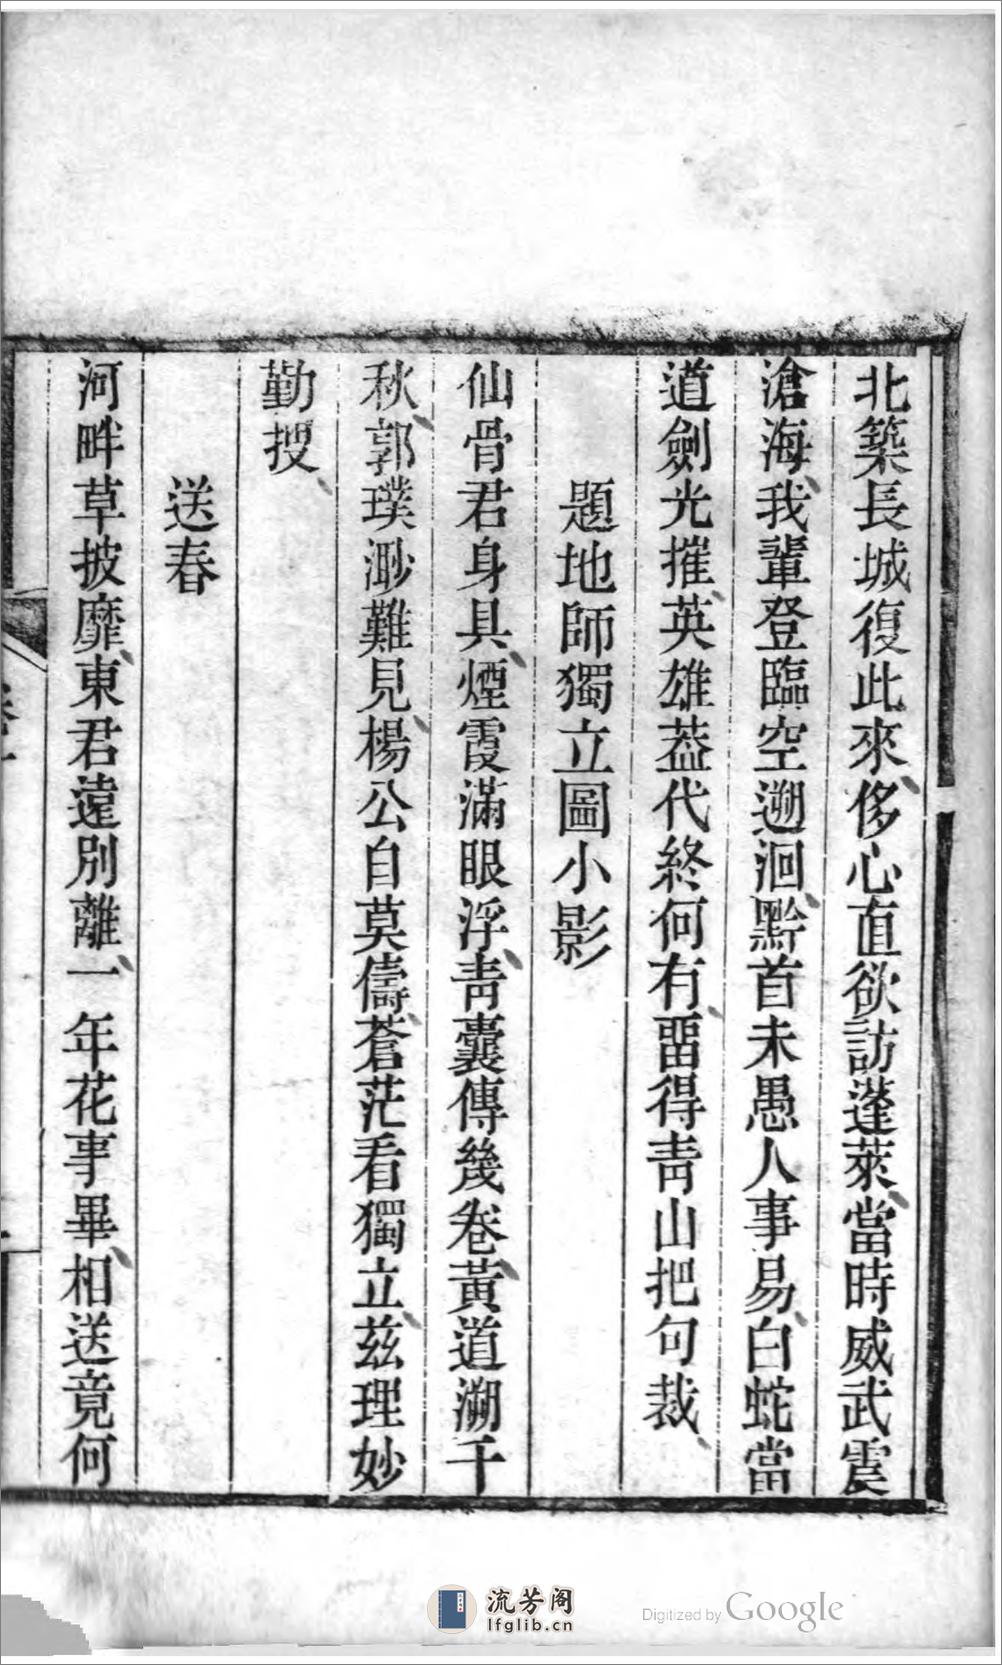 北築長城復此來、侈心直欲訪蓬萊、當時威武震
滄海、我輩登臨空遡洄、黔首未愚人事易、白蛇當
道劍光摧、英雄葢代終何有、畱得青山把句裁、
題地師獨立圖小影
仙骨君身具、煙霞滿眼浮、青囊傳幾卷、黃道溯千
秋、郭璞渺難見、楊公自莫儔、蒼茫看獨立、茲理妙
勤搜、
送春
河畔草披靡、東君遠別離、一年花事畢、相送竟何
流芳阁
lfglib.cn
Digitized by Google